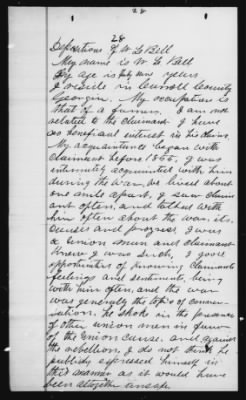 28
28
Deposition of W L Bell
My name is W L Bell
My age is fifty years
I reside in Carroll County
Georgia. My occupation is
that of a farmer. I am not
related to the claimant. I have
no beneficial interest in his claim.
My acquaintance began with
claimant before 1865. I was
intimately acquainted with him
during the war, we lived about
one mile apart, I saw claim
ant often, and talked with
him often about the war, its
causes and progress. I was
a Union man and claimant
knew I was such, I good
opportunities of knowing claimants
feelings and sentiments, being
with him often, and the war
was generally the topic of conver-
sation. he spoke in the presence
of other union men in favor
of the Union cause. and against
the rebellion. I do not think he
publicly expressed himself in
this manner as it would have
been altogether unsafe